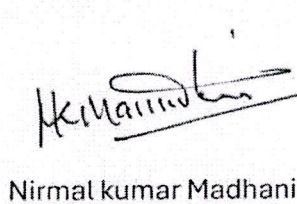 Nirmal kumar Madhani